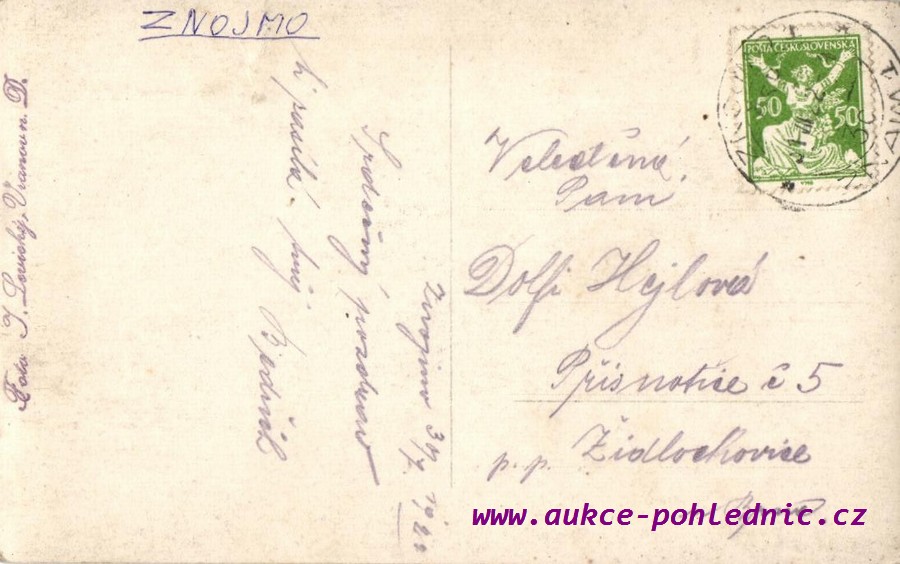 ZNOJMO
Foto J. Lovický, Vranov n. D.
Znojmo 31/7 1922
Srdečný pozdrav
posílá
POŠTA ČESKOSLOVENSKÁ
50 50
Veleděná
Paní
Dolfi Hejlová
Přisnotice č 5
p.p. Židlochovice
www.aukce-pohlednic.cz